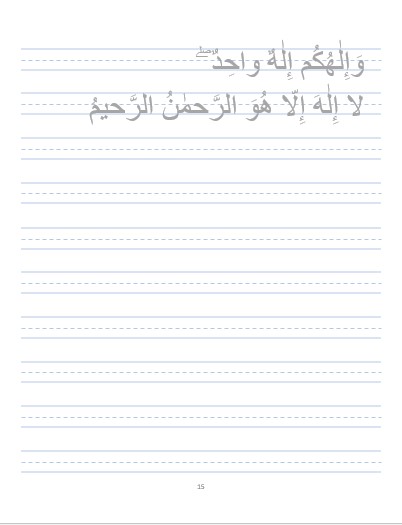 وَإِلٰهُكُم إِلٰهٌ واحِدٌ ۖ
لا إِلٰهَ إِلّا هُوَ الرَّحمٰنُ الرَّحيمُ
15